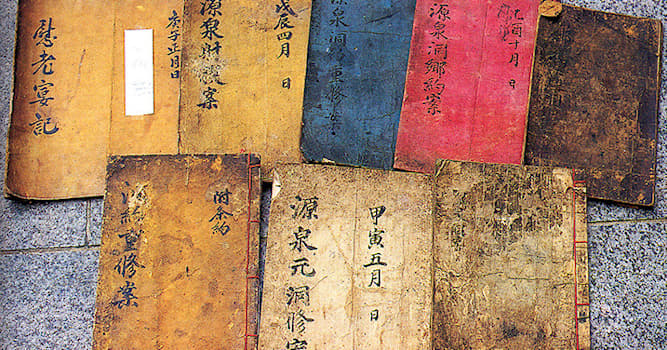 慰老宴記
庚子正月日
源泉財穀案
戊辰四月 日
源泉洞重修案
源泉洞鄉約案
己酉十月 日
重修案
附条約
源泉元洞修案
甲寅五月 日